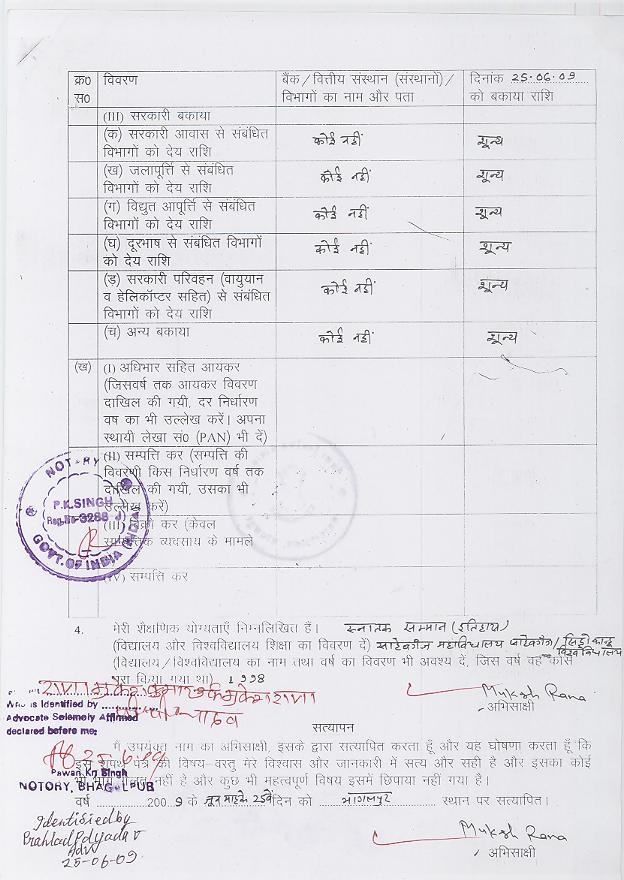 क्र0 विवरण बैंक/वित्तीय संस्थान (संस्थानों)/ दिनांक 25.06.09
स0 विभागों का नाम और पता को बकाया राशि
(III) सरकारी बकाया
(क) सरकारी आवास से संबंधित
विभागों को देय राशि कोई नहीं शून्य
(ख) जलापूर्त्ति से संबंधित
विभागों को देय राशि कोई नहीं शून्य
(ग) विद्युत आपूर्त्ति से संबंधित
विभागों को देय राशि कोई नहीं शून्य
(घ) दूरभाष से संबंधित विभागों
को देय राशि कोई नहीं शून्य
(ड़) सरकारी परिवहन (वायुयान
व हेलिकॉप्टर सहित) से संबंधित
विभागों को देय राशि कोई नहीं शून्य
(च) अन्य बकाया कोई नहीं शून्य
(ख) (I) अधिभार सहित आयकर
(जिसवर्ष तक आयकर विवरण
दाखिल की गयी, दर निर्धारण
वष का भी उल्लेख करें। अपना
स्थायी लेखा स0 (PAN) भी दें)
(II) सम्पत्ति कर (सम्पत्ति की
विवरणी किस निर्धारण वर्ष तक
दाखिल की गयी, उसका भी
उल्लेख करें)
(III) कर (केवल
व्यवसाय के मामले
(IV) सम्पत्ति कर
NOTARY
P.K.SINGH
Reg.No-9288
GOVT.OF INDIA (INDIA)
4. मेरी शैक्षणिक योग्यताएँ निम्नलिखित हैं। स्नातक सम्मान (इतिहास)
(विद्यालय और विश्वविद्यालय शिक्षा का विवरण दें) महाविद्यालय सिद्दो कान्हु
विश्वविद्यालय
(विद्यालय/विश्वविद्यालय का नाम तथा वर्ष का विवरण भी अवश्य दें, जिस वर्ष वह कोर्स
पूरा किया गया था) 1998
Who is Identified by
Advocate Solemnly Affirmed
declared before me;
Mukesh Rana
अभिसाक्षी
सत्यापन
मैं उपर्यक्त नाम का अभिसाक्षी, इसके द्वारा सत्यापित करता हूँ और यह घोषणा करता हूँ कि
इस शपथ पत्र की विषय-वस्तु मेरे विश्वास और जानकारी में सत्य और सही है और इसका कोई
भी भाग गलत नहीं है और कुछ भी महत्वपूर्ण विषय इसमें छिपाया नहीं गया है।
25-6-09
Pawan Kr. Singh
NOTORY, BHAGALPUR
वर्ष 2009 के जून माहके 25वें दिन को भागलपुर स्थान पर सत्यापित।
Identified by
Prahlad Pd yadav
Adv
25-06-09.
Mukesh Rana
अभिसाक्षी